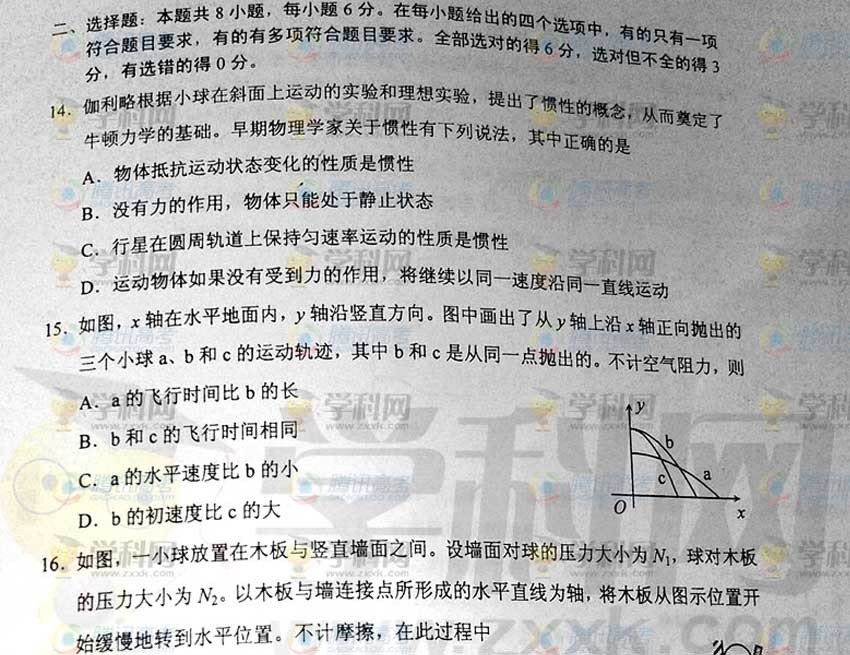 二、选择题：本题共 8 小题，每小题 6 分。在每小题给出的四个选项中，有的只有一项
符合题目要求，有的有多项符合题目要求。全部选对的得 6 分，选对但不全的得 3
分，有选错的得 0 分。
14. 伽利略根据小球在斜面上运动的实验和理想实验，提出了惯性的概念，从而奠定了
牛顿力学的基础。早期物理学家关于惯性有下列说法，其中正确的是
A．物体抵抗运动状态变化的性质是惯性
B．没有力的作用，物体只能处于静止状态
C．行星在圆周轨道上保持匀速率运动的性质是惯性
D．运动物体如果没有受到力的作用，将继续以同一速度沿同一直线运动
15. 如图，x 轴在水平地面内，y 轴沿竖直方向。图中画出了从 y 轴上沿 x 轴正向抛出的
三个小球 a、b 和 c 的运动轨迹，其中 b 和 c 是从同一点抛出的。不计空气阻力，则
A．a 的飞行时间比 b 的长
B．b 和 c 的飞行时间相同
C．a 的水平速度比 b 的小
D．b 的初速度比 c 的大
y
b
c
a
O
x
16. 如图，一小球放置在木板与竖直墙面之间。设墙面对球的压力大小为 N₁，球对木板
的压力大小为 N₂。以木板与墙连接点所形成的水平直线为轴，将木板从图示位置开
始缓慢地转到水平位置。不计摩擦，在此过程中
学科网
www.zxxk.com
腾讯高考